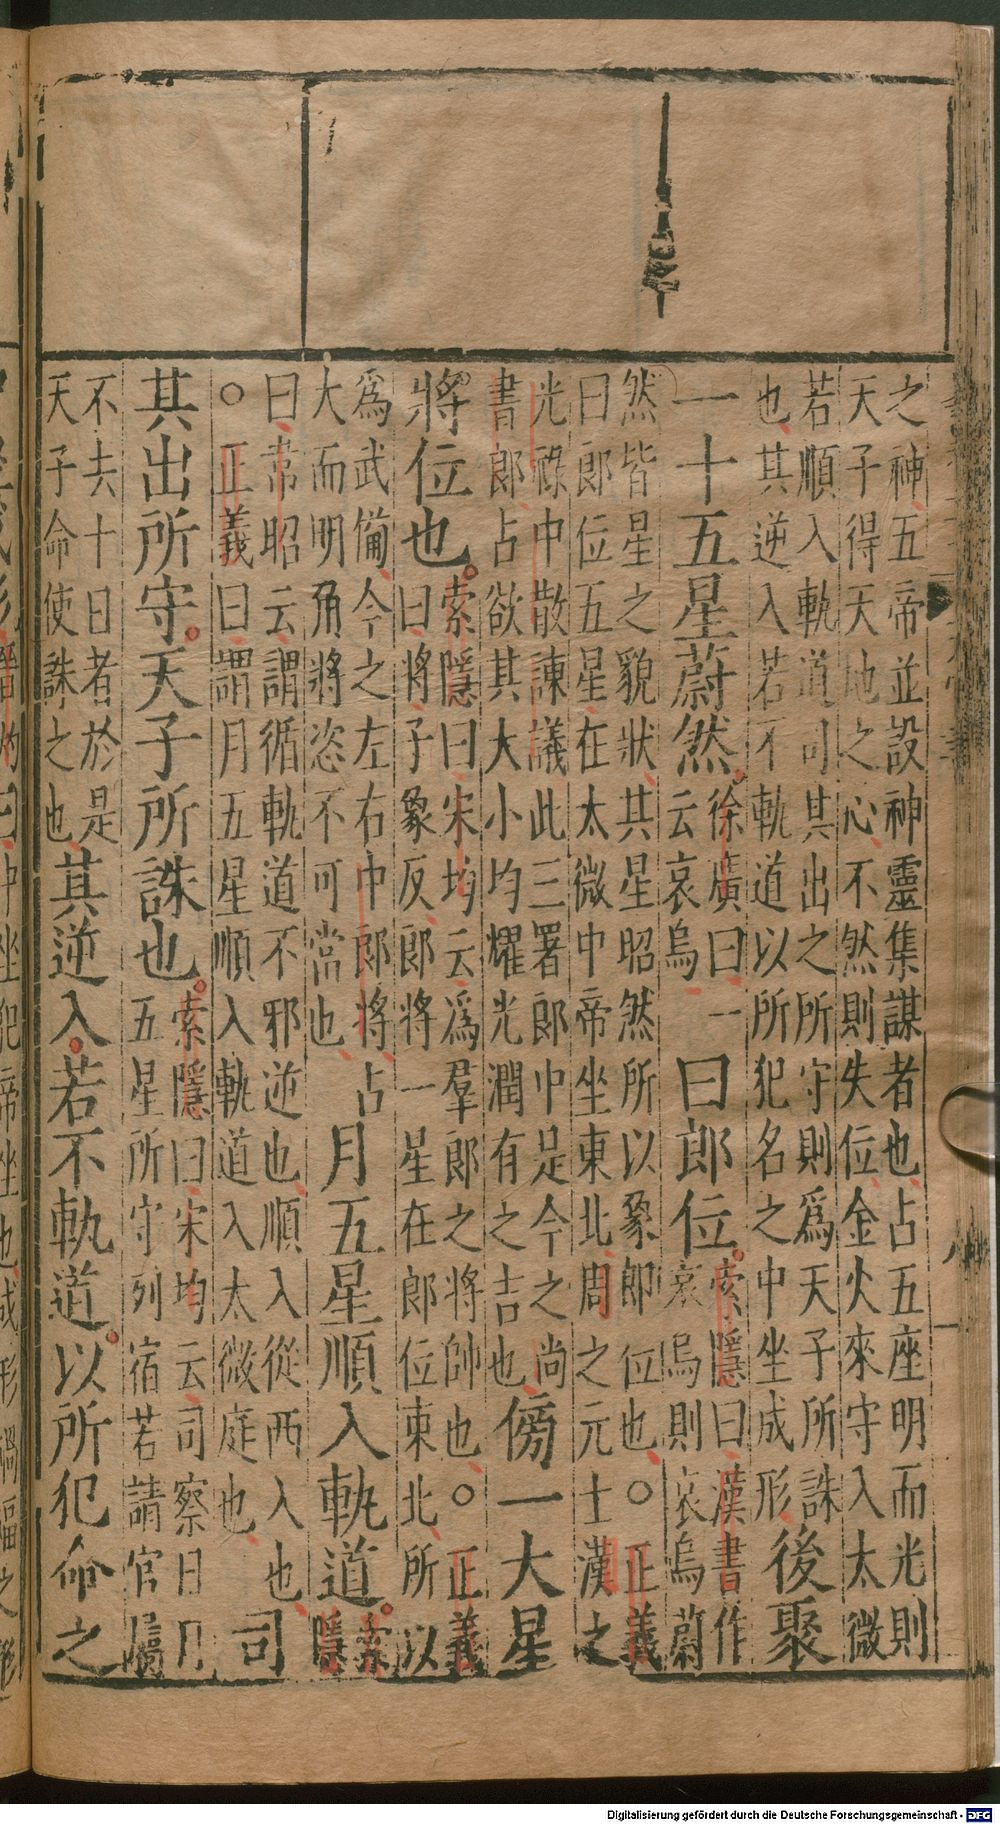 之神五帝並設神靈集謀者也占五座明而光則
天子得天地之心不然則失位金火來守入太微
若順入軌道司其出之所守則爲天子所誅
也其逆入若不軌道以所犯名之中坐成形後聚
一十五星蔚然徐廣曰一云哀烏曰郎位索隱曰漢書作哀烏則哀烏蔚
然皆星之貌狀其星昭然所以象郎位也○正義
曰郎位五星在太微中帝坐東北周之元士漢之
光祿中散諫議此三署郎中是今之尚
書郎占欲其大小均耀光潤有之吉也傍一大星
將位也索隱曰宋均云爲羣郎之將帥也○正義曰將子象反郎將一星在郎位東北所以
爲武備今之左右中郎將占
大而明角將恣不可當也月五星順入軌道索隱
曰韋昭云謂循軌道不邪逆也順入從西入也
○正義曰謂月五星順入軌道入太微庭也司
其出所守天子所誅也索隱曰宋均云司察日月五星所守列宿若請官屬
不去十日者於是
天子命使誅之也其逆入若不軌道以所犯命之
Digitalisierung gefördert durch die Deutsche Forschungsgemeinschaft - DFG